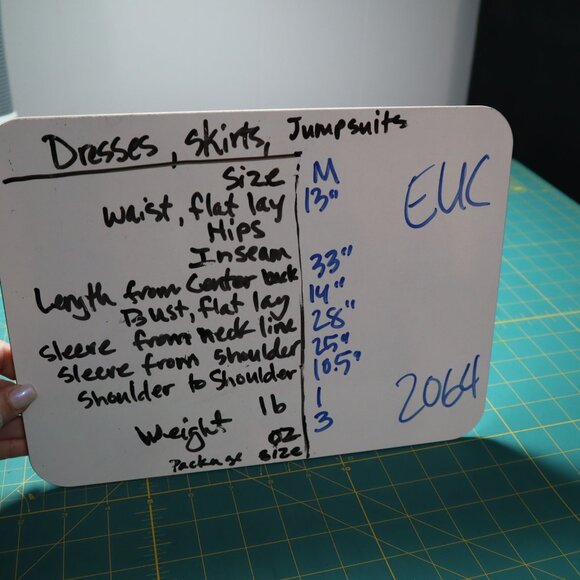 Dresses, skirts, Jumpsuits
Size M
Waist, flat lay 13"
Hips
Inseam
Length from Center back 33"
Bust, flat lay 14"
Sleeve from neck line 28"
Sleeve from shoulder 25"
Shoulder to Shoulder 10.5"
Weight lb 1
oz 3
Package size
EUC
2064